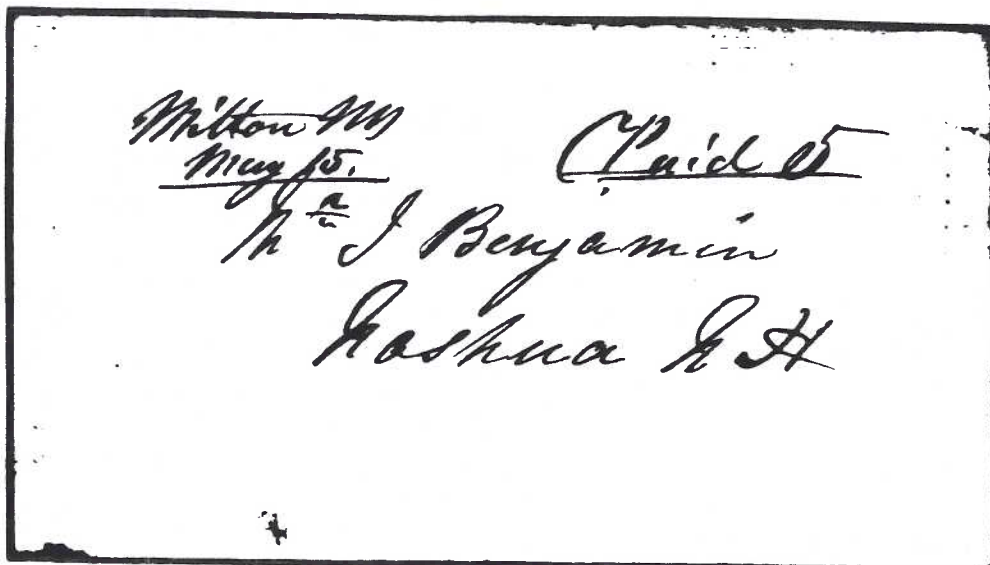 Milton Ms
May 15.
Paid 5
Mr J Benjamin
Nashua N H